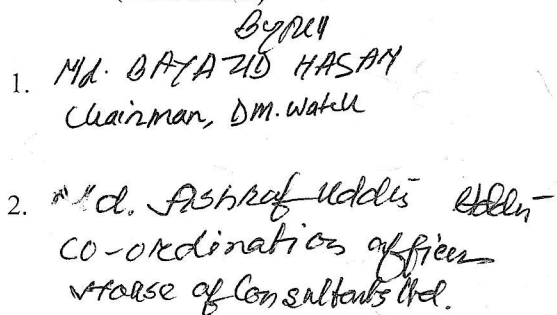 1. Md. BAYAZID HASAN
Chairman, DM. Watch
2. Md. Ashraf Uddin
CO-ordination officer
House of Consultants Ltd.